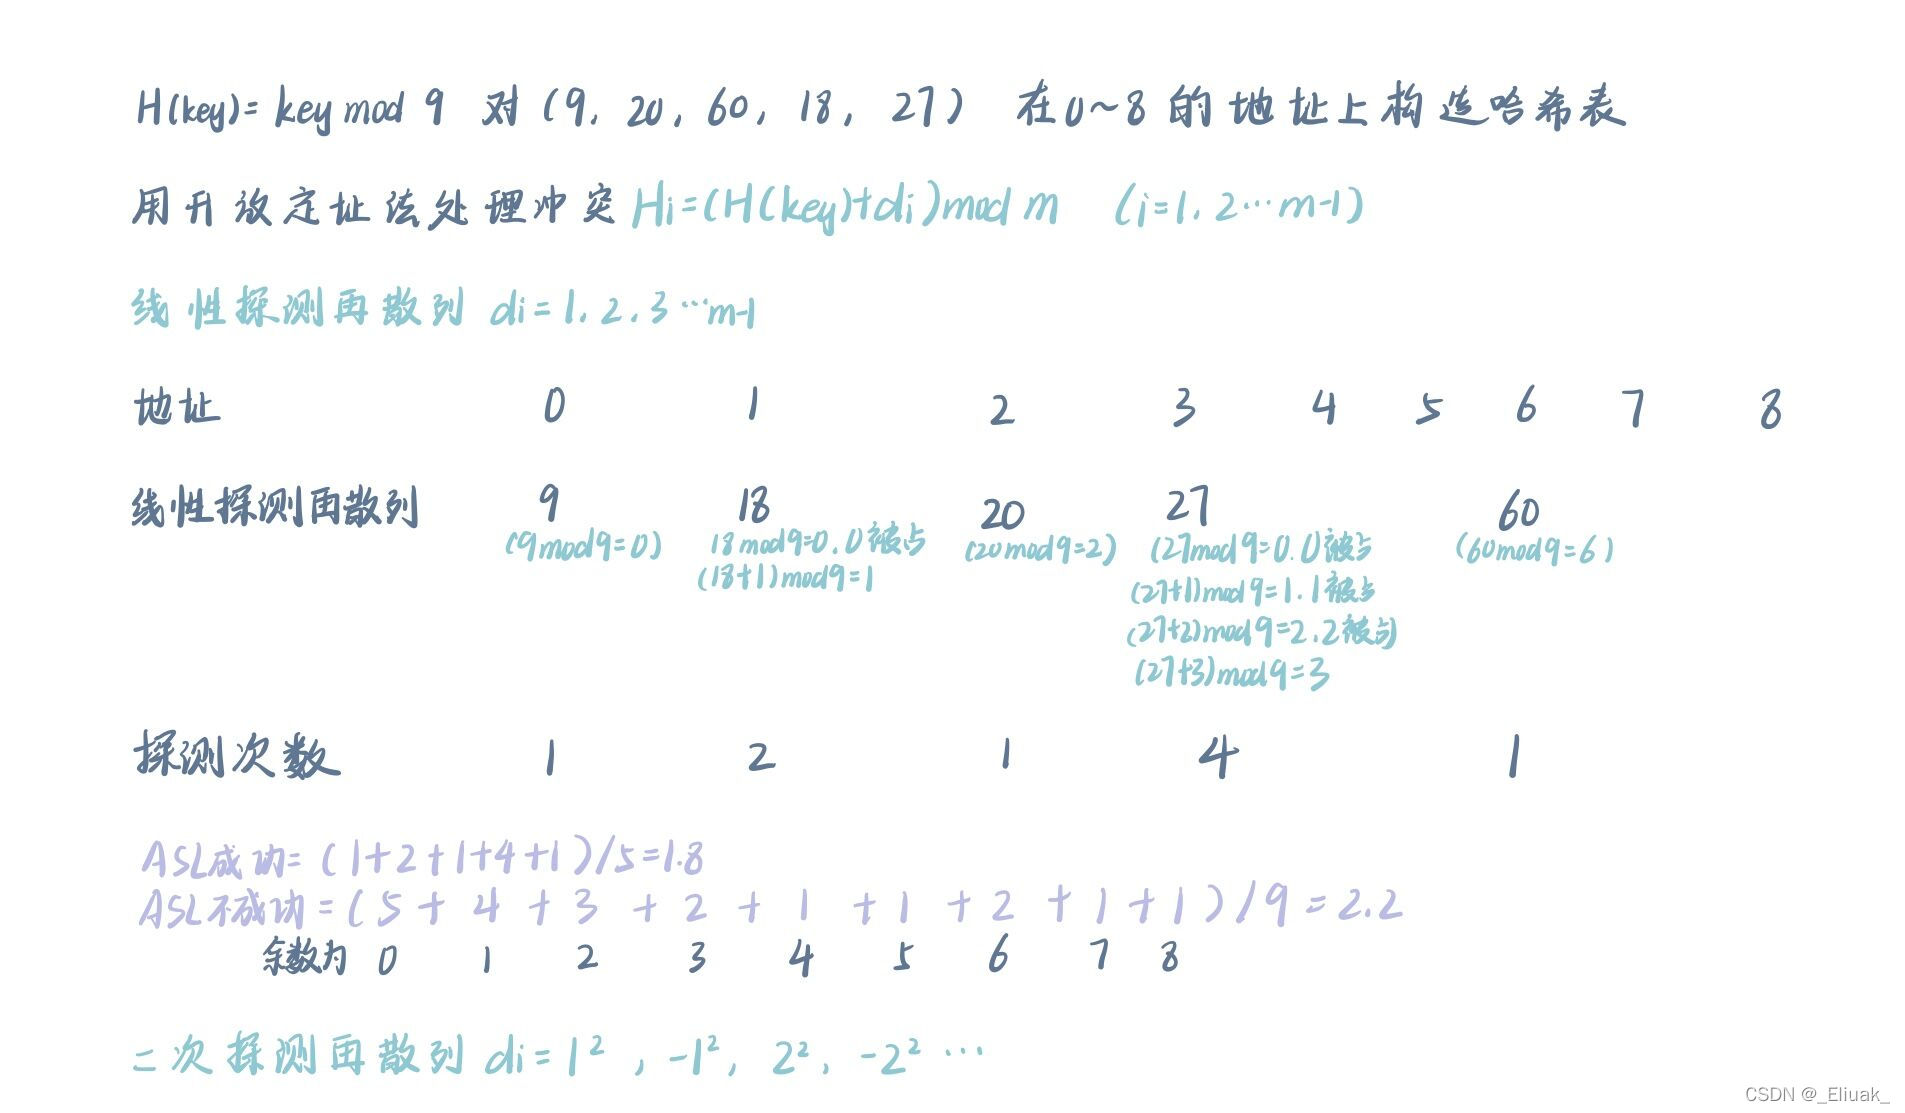 H(key)= key mod 9 对 (9, 20, 60, 18, 27) 在0~8的地址上构造哈希表
用开放定址法处理冲突 Hi=(H(key)+di)mod m (i=1, 2…m-1)
线性探测再散列 di=1, 2, 3…m-1
地址 0 1 2 3 4 5 6 7 8
线性探测再散列 9 18 20 27 60
(9mod9=0) 18mod9=0. 0被占 (20mod9=2) (27mod9=0. 0被占 (60mod9=6)
(18+1)mod9=1 (27+1)mod9=1. 1被占
(27+2)mod9=2. 2被占)
(27+3)mod9=3
探测次数 1 2 1 4 1
ASL成功=(1+2+1+4+1)/5=1.8
ASL不成功=(5+4+3+2+1+1+2+1+1)/9=2.2
余数为 0 1 2 3 4 5 6 7 8
二次探测再散列 di=1², -1², 2², -2² …
CSDN @_Eliuak_